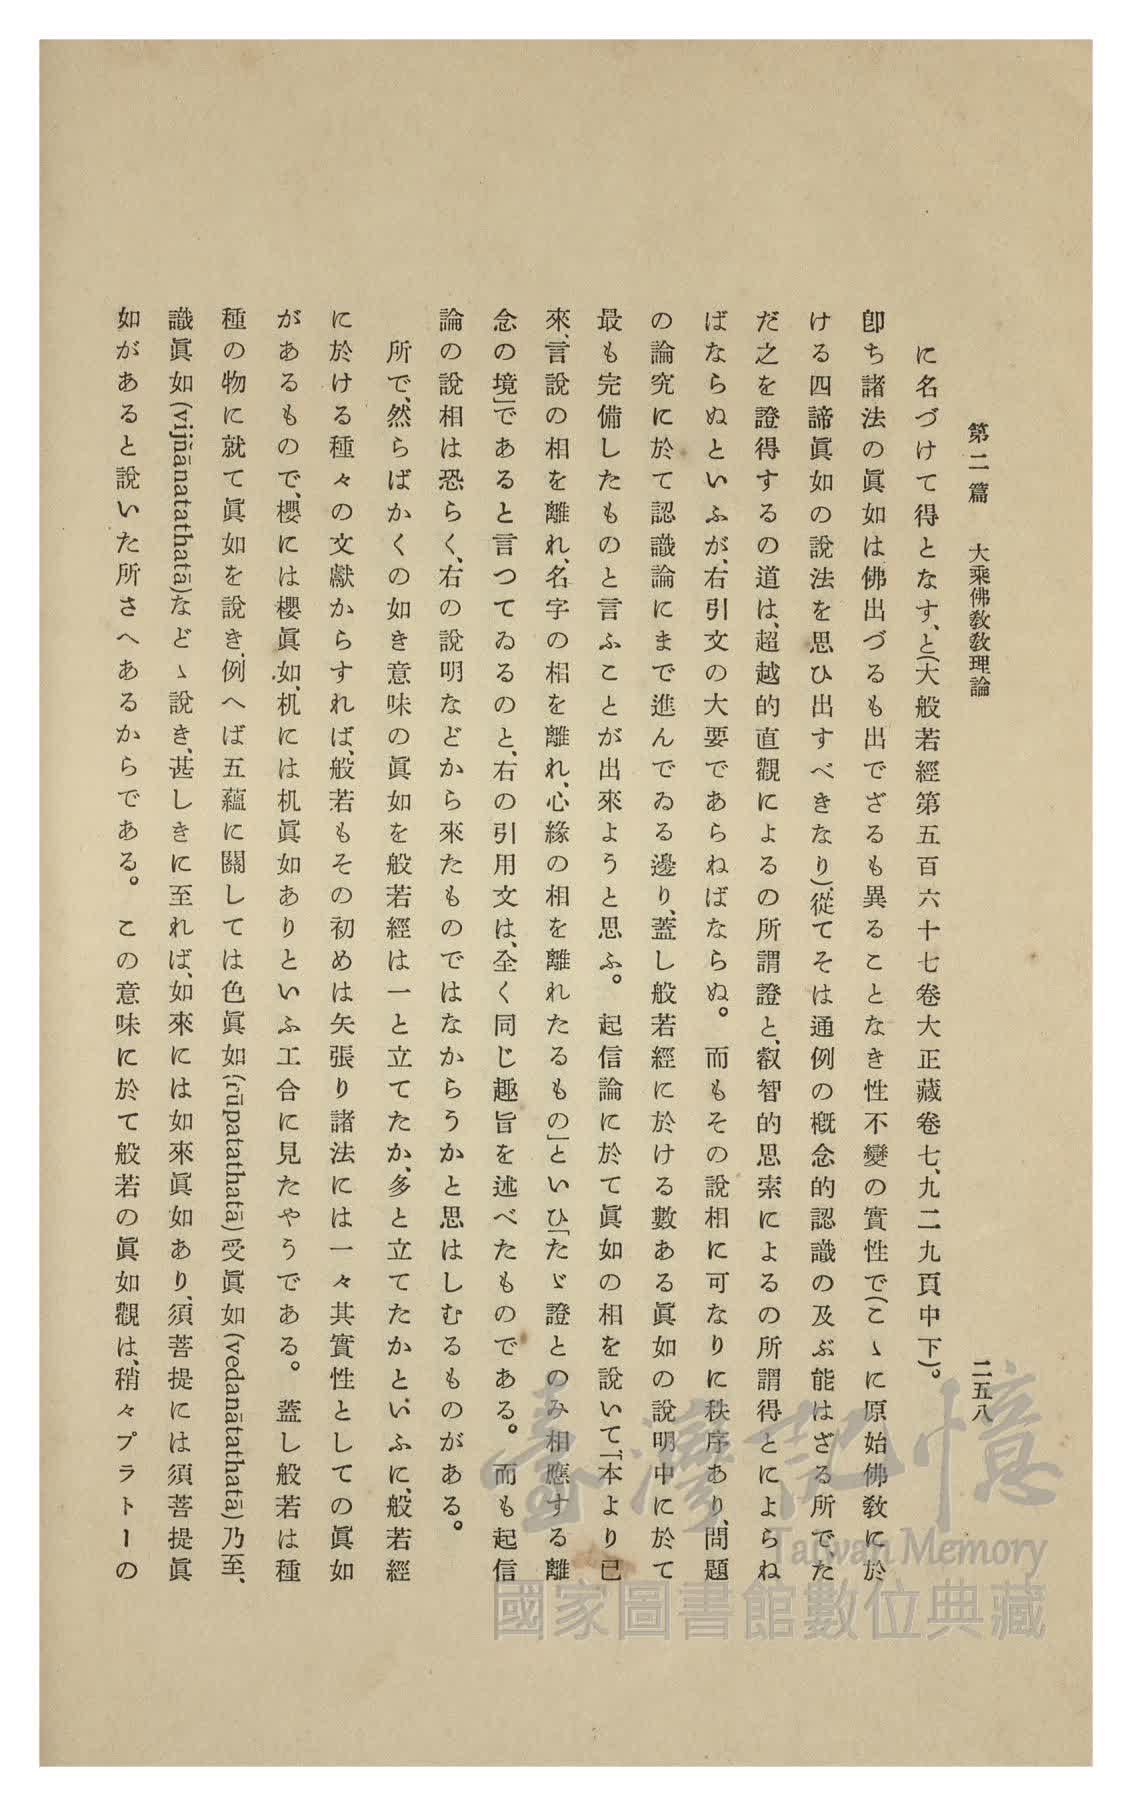 第二篇　大乘佛敎敎理論
二五八
に名づけて得となす、と(大般若經第五百六十七卷大正藏卷七、九二九頁中下)。
卽ち諸法の眞如は佛出づるも出でざるも異ることなき性不變の實性で(こゝに原始佛敎に於
ける四諦眞如の說法を思ひ出すべきなり)、從てそは通例の槪念的認識の及ぶ能はざる所で、た
だ之を證得するの道は、超越的直觀によるの所謂證と、叡智的思索によるの所謂得とによらね
ばならぬといふが、右引文の大要であらねばならぬ。而もその說相に可なりに秩序あり、問題
の論究に於て認識論にまで進んでゐる邊り、蓋し般若經に於ける數ある眞如の說明中に於て
最も完備したものと言ふことが出來ようと思ふ。起信論に於て眞如の相を說いて「本より已
來、言說の相を離れ、名字の相を離れ、心緣の相を離れたるもの」といひ「たゞ證とのみ相應する離
念の境」であると言つてゐるのと、右の引用文は、全く同じ趣旨を述べたものである。而も起信
論の說相は恐らく、右の說明などから來たものではなからうかと思はしむるものがある。
所で、然らばかくの如き意味の眞如を般若經は一と立てたか、多と立てたかといふに、般若經
に於ける種々の文獻からすれば、般若もその初めは矢張り諸法には一々其實性としての眞如
があるもので、櫻には櫻眞如、机には机眞如ありといふ工合に見たやうである。蓋し般若は種
種の物に就て眞如を說き、例へば五蘊に關しては色眞如(rūpatathatā)受眞如(vedanātathatā)乃至、
識眞如(vijñānatathatā)などゝ說き、甚しきに至れば、如來には如來眞如あり、須菩提には須菩提眞
如があると說いた所さへあるからである。この意味に於て般若の眞如觀は、稍々プラトーの
臺灣記憶
Taiwan Memory
國家圖書館數位典藏